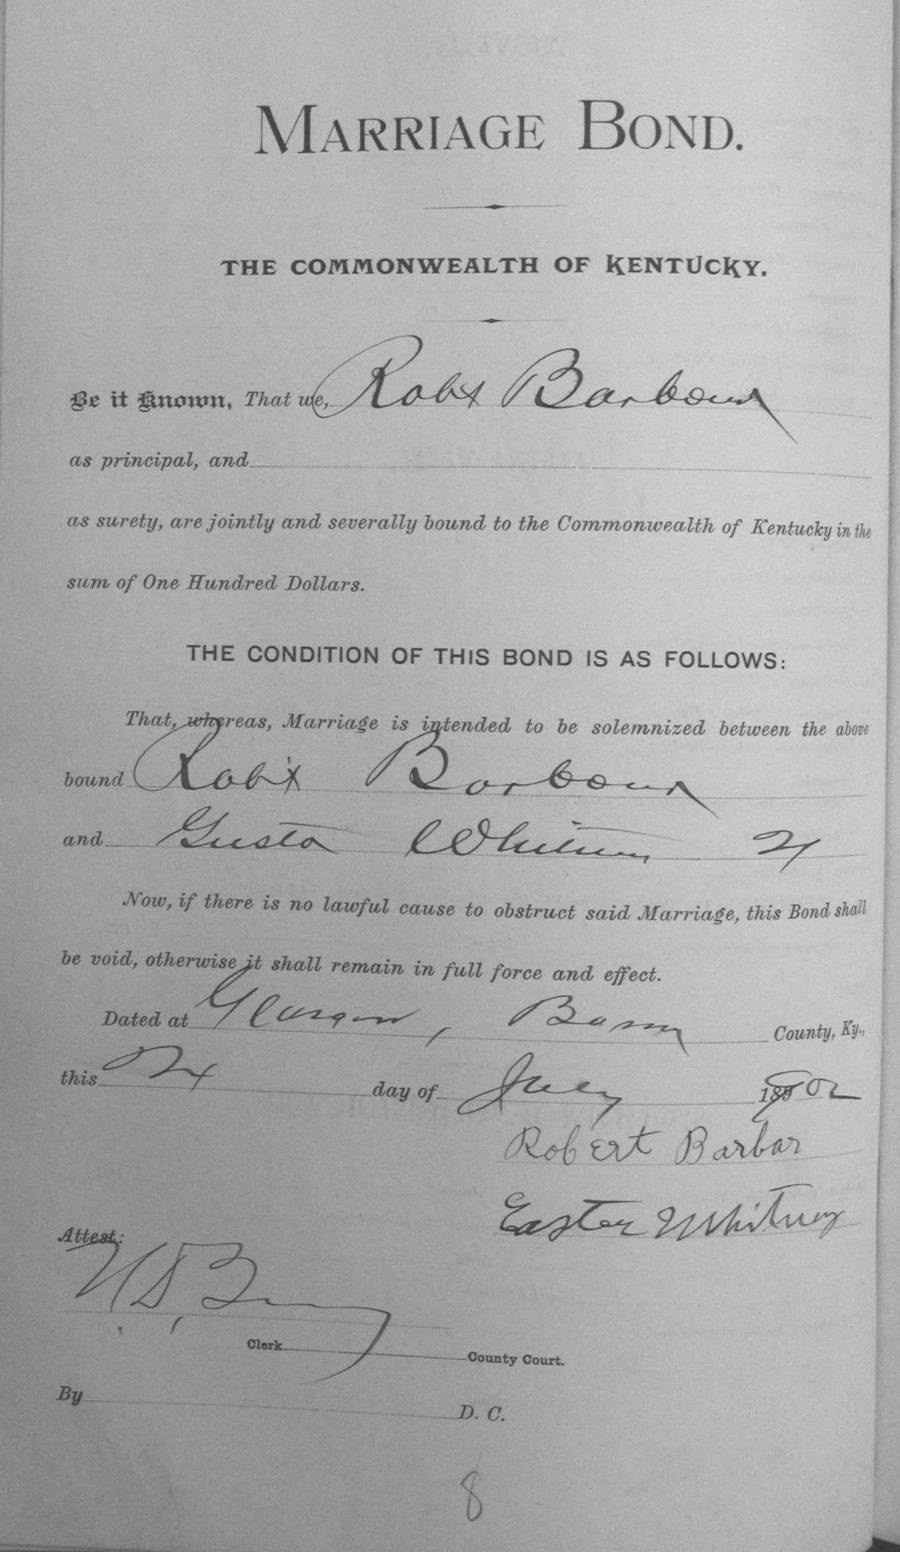 MARRIAGE BOND.
THE COMMONWEALTH OF KENTUCKY.
Be it Known, That we, Robt Barbour
as principal, and
as surety, are jointly and severally bound to the Commonwealth of Kentucky in the
sum of One Hundred Dollars.
THE CONDITION OF THIS BOND IS AS FOLLOWS:
That, whereas, Marriage is intended to be solemnized between the above
bound Robt Barbour
and Gusta Whitney
Now, if there is no lawful cause to obstruct said Marriage, this Bond shall
be void, otherwise it shall remain in full force and effect.
Dated at Glasgow, Barren County, Ky.,
this day of July 1902
Robert Barbar
Easter Whitney
Attest:
Clerk County Court.
By D. C.
8